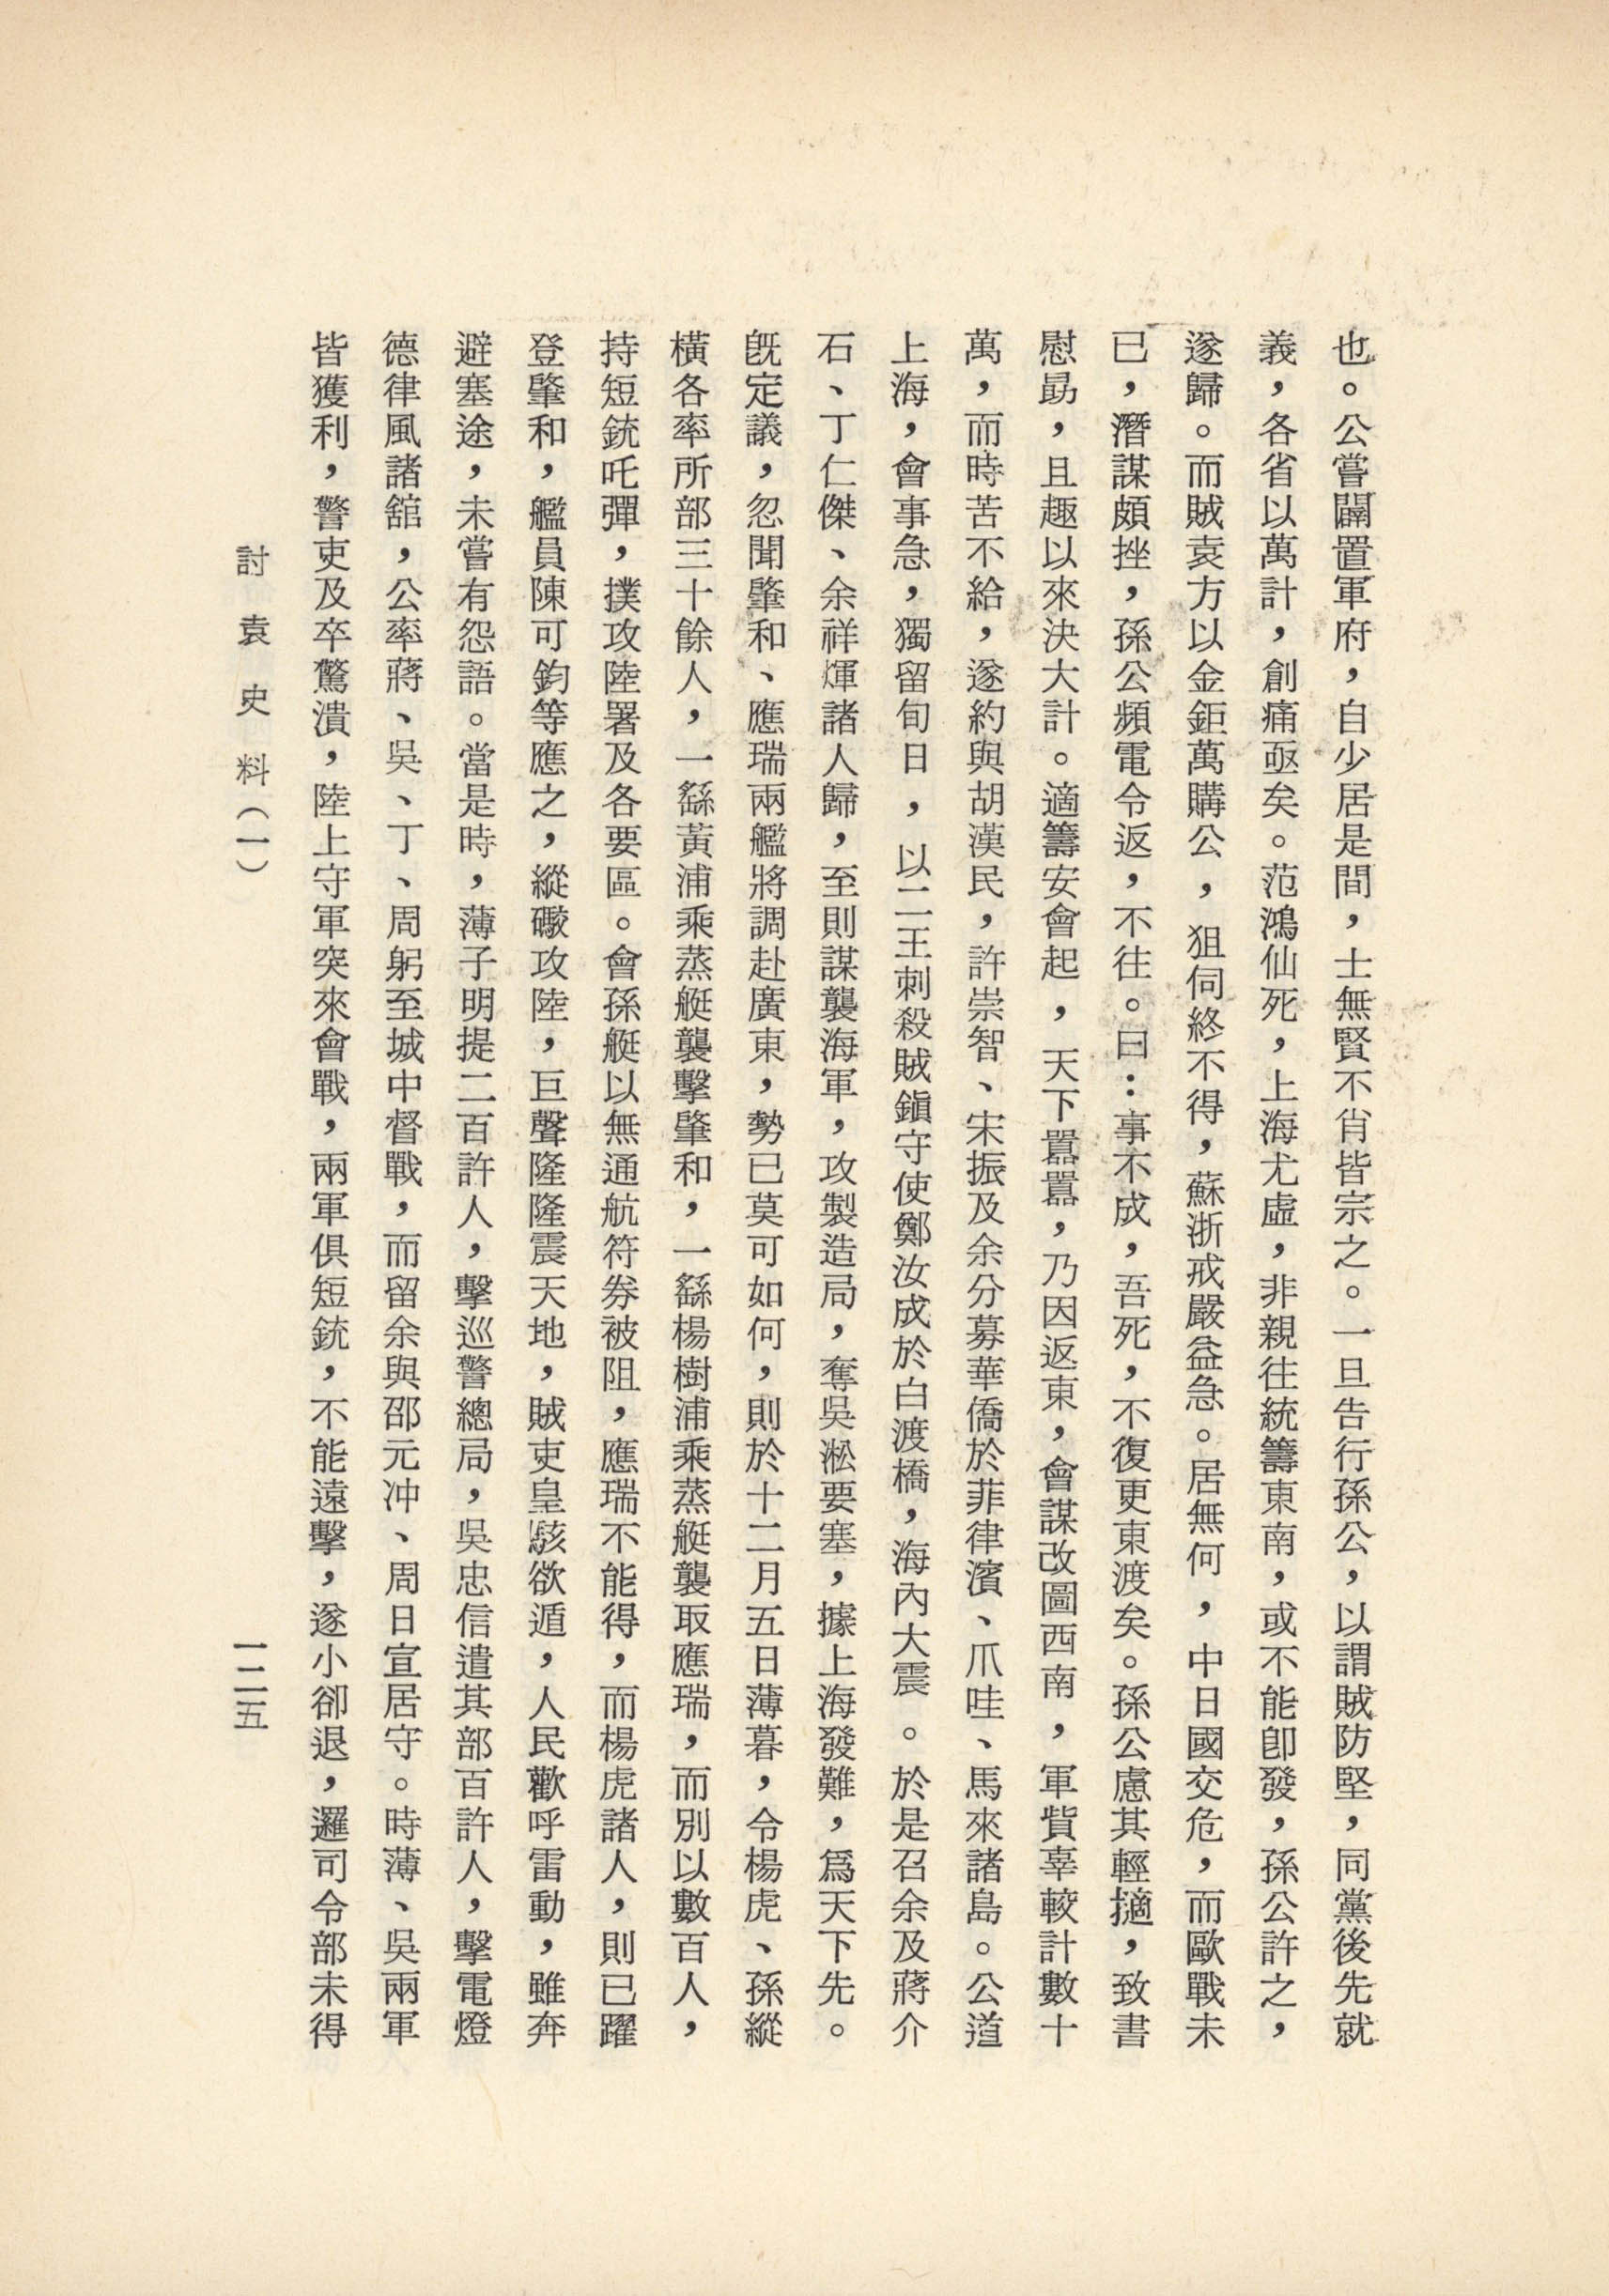 也。公嘗闢置軍府，自少居是間，士無賢不肖皆宗之。一旦告行孫公，以謂賊防堅，同黨後先就
義，各省以萬計，創痛亟矣。范鴻仙死，上海尤虛，非親往統籌東南，或不能卽發，孫公許之，
遂歸。而賊袁方以金鉅萬購公，狙伺終不得，蘇浙戒嚴益急。居無何，中日國交危，而歐戰未
已，潛謀頗挫，孫公頻電令返，不往。曰：事不成，吾死，不復更東渡矣。孫公慮其輕擿，致書
慰勗，且趣以來決大計。適籌安會起，天下囂囂，乃因返東，會謀改圖西南，軍貲辜較計數十
萬，而時苦不給，遂約與胡漢民，許崇智、宋振及余分募華僑於菲律濱、爪哇、馬來諸島。公道
上海，會事急，獨留旬日，以二王刺殺賊鎭守使鄭汝成於白渡橋，海內大震。於是召余及蔣介
石、丁仁傑、余祥煇諸人歸，至則謀襲海軍，攻製造局，奪吳淞要塞，據上海發難，爲天下先。
旣定議，忽聞肇和、應瑞兩艦將調赴廣東，勢已莫可如何，則於十二月五日薄暮，令楊虎、孫縱
橫各率所部三十餘人，一繇黃浦乘蒸艇襲擊肇和，一繇楊樹浦乘蒸艇襲取應瑞，而別以數百人，
持短銃吒彈，撲攻陸署及各要區。會孫艇以無通航符券被阻，應瑞不能得，而楊虎諸人，則已躍
登肇和，艦員陳可鈞等應之，縱礮攻陸，巨聲隆隆震天地，賊吏皇駭欲遁，人民歡呼雷動，雖奔
避塞途，未嘗有怨語。當是時，薄子明提二百許人，擊巡警總局，吳忠信遣其部百許人，擊電燈
德律風諸舘，公率蔣、吳、丁、周躬至城中督戰，而留余與邵元冲、周日宣居守。時薄、吳兩軍
皆獲利，警吏及卒驚潰，陸上守軍突來會戰，兩軍俱短銃，不能遠擊，遂小卻退，邏司令部未得
討袁史料（一）
一二五